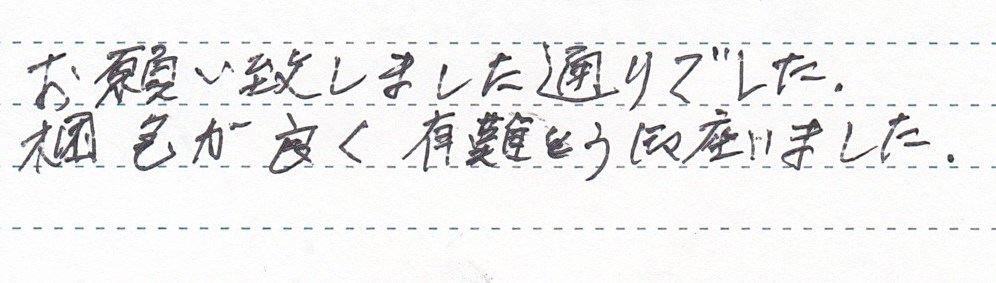 お願い致しました通りでした.
梱包が良く 有難とう御座いました.